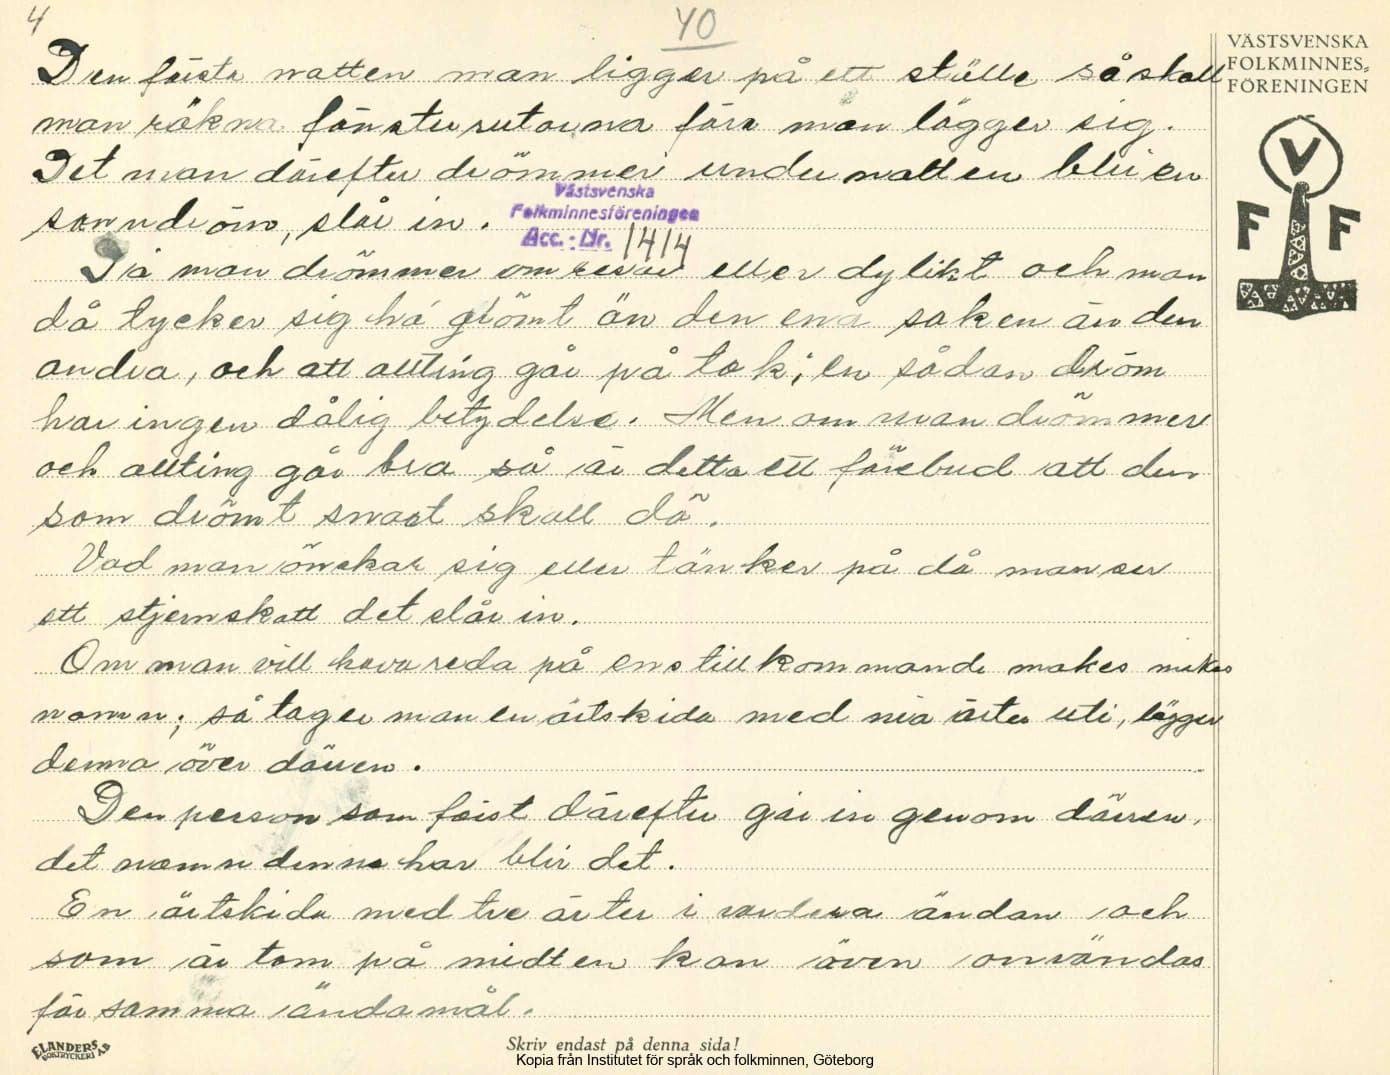 4
40
VÄSTSVENSKA
FOLKMINNES-
FÖRENINGEN
V
F F
Den första natten man ligger på ett ställe så skall
man räkna fönsterrutorna förr män lägger sig.
Det man därefter drömmer under natten blir en
sanndröm, slår in.
Västsvenska
Folkminnesföreningen
Acc. - Nr. 1414
Då man drömmer om resor eller dylikt och man
då tycker sig ha glömt än den ena saken än den
andra, och att allting går på tok; en sådan dröm
har ingen dålig betydelse. Men om man drömmer
och allting går bra så är detta ett förebud att den
som drömt snart skall dö.
Vad man önskar sig eller tänker på då man ser
ett stjernskott det slår in.
Om man vill hava reda på ens tillkommande makes makes
namn; så tager man en ärtskida med nia ärter uti, lägger
denna över dörren.
Den person som först därefter går in genom dörren,
det namn denne har blir det.
En ärtskida med tre ärter i vardera ändan och
som är tom på midten kan även användas
för samma ändamål.
ELANDERS
BOKTRYCKERI A.B
Skriv endast på denna sida!
Kopia från Institutet för språk och folkminnen, Göteborg